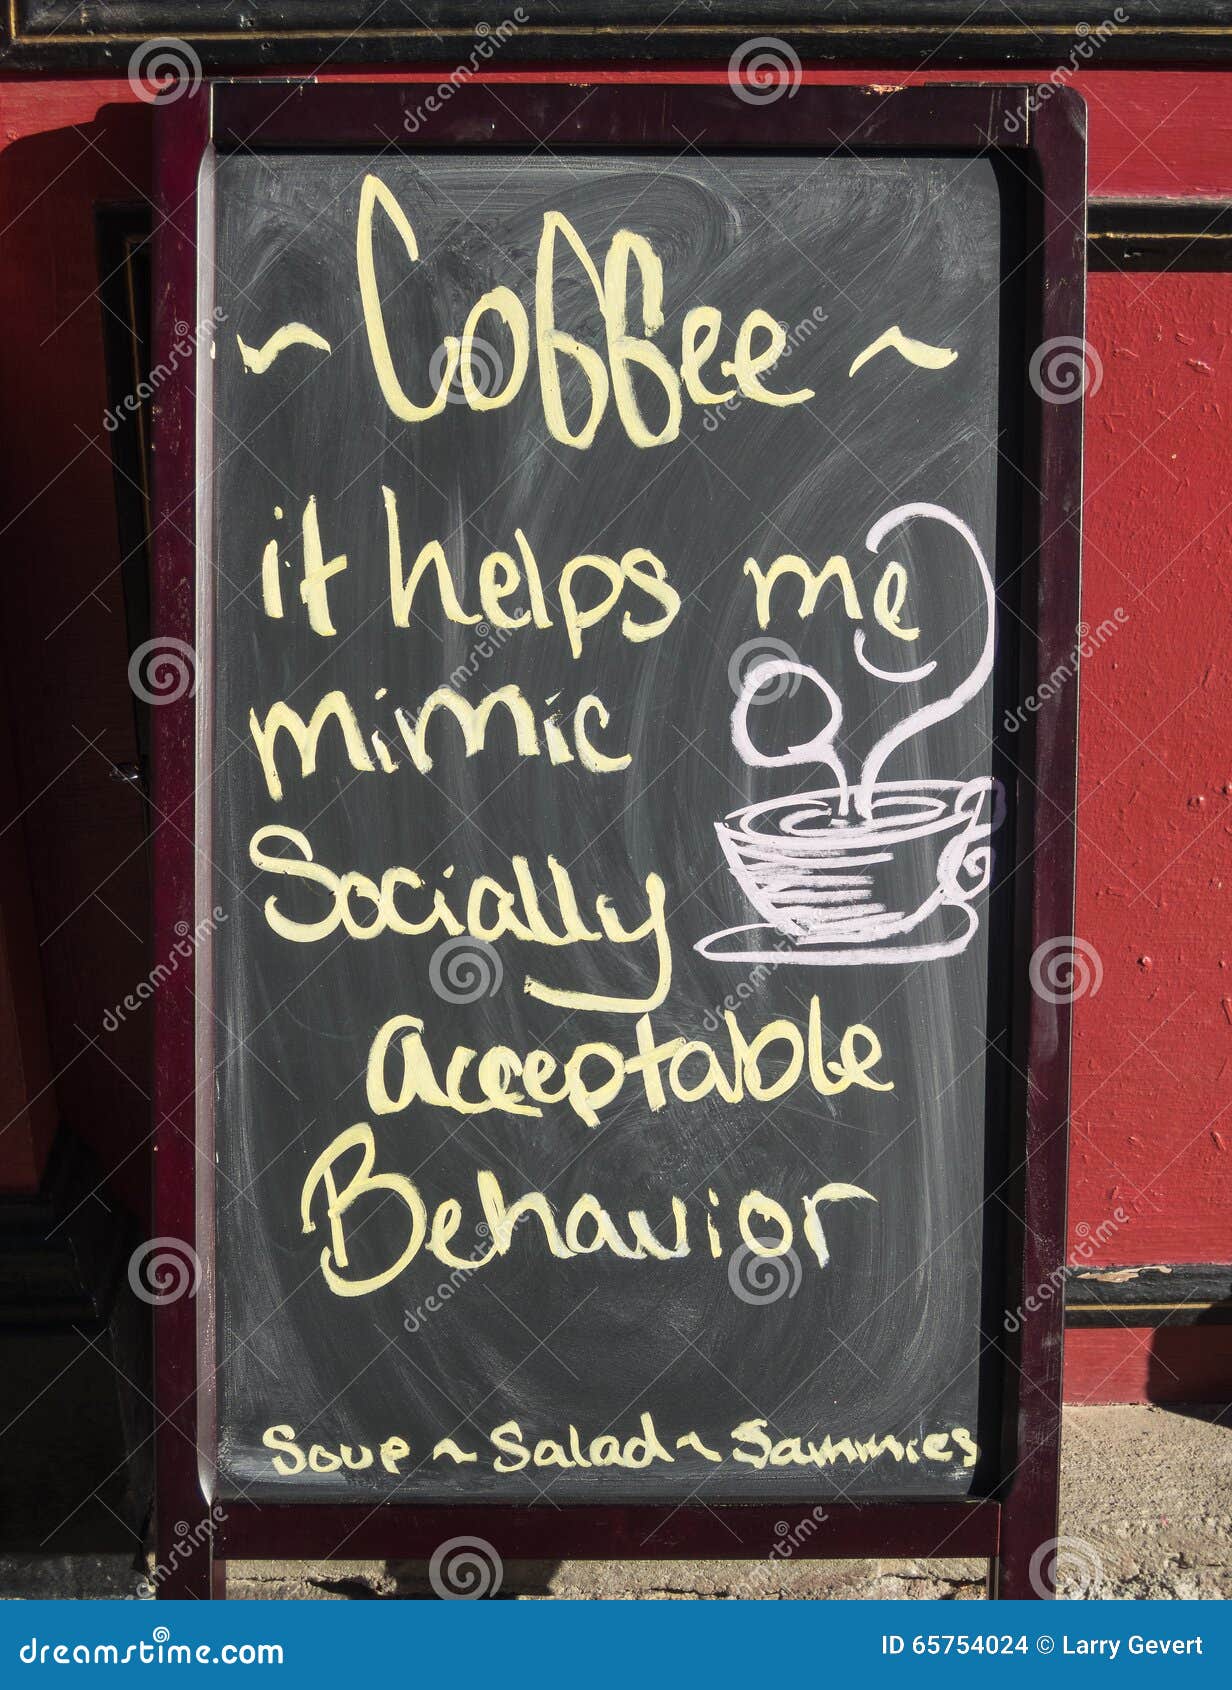 ~ Coffee ~
it helps me
mimic
Socially
acceptable
Behavior
Soup ~ Salad ~ Sammies
dreamstime.com
ID 65754024 © Larry Gevert